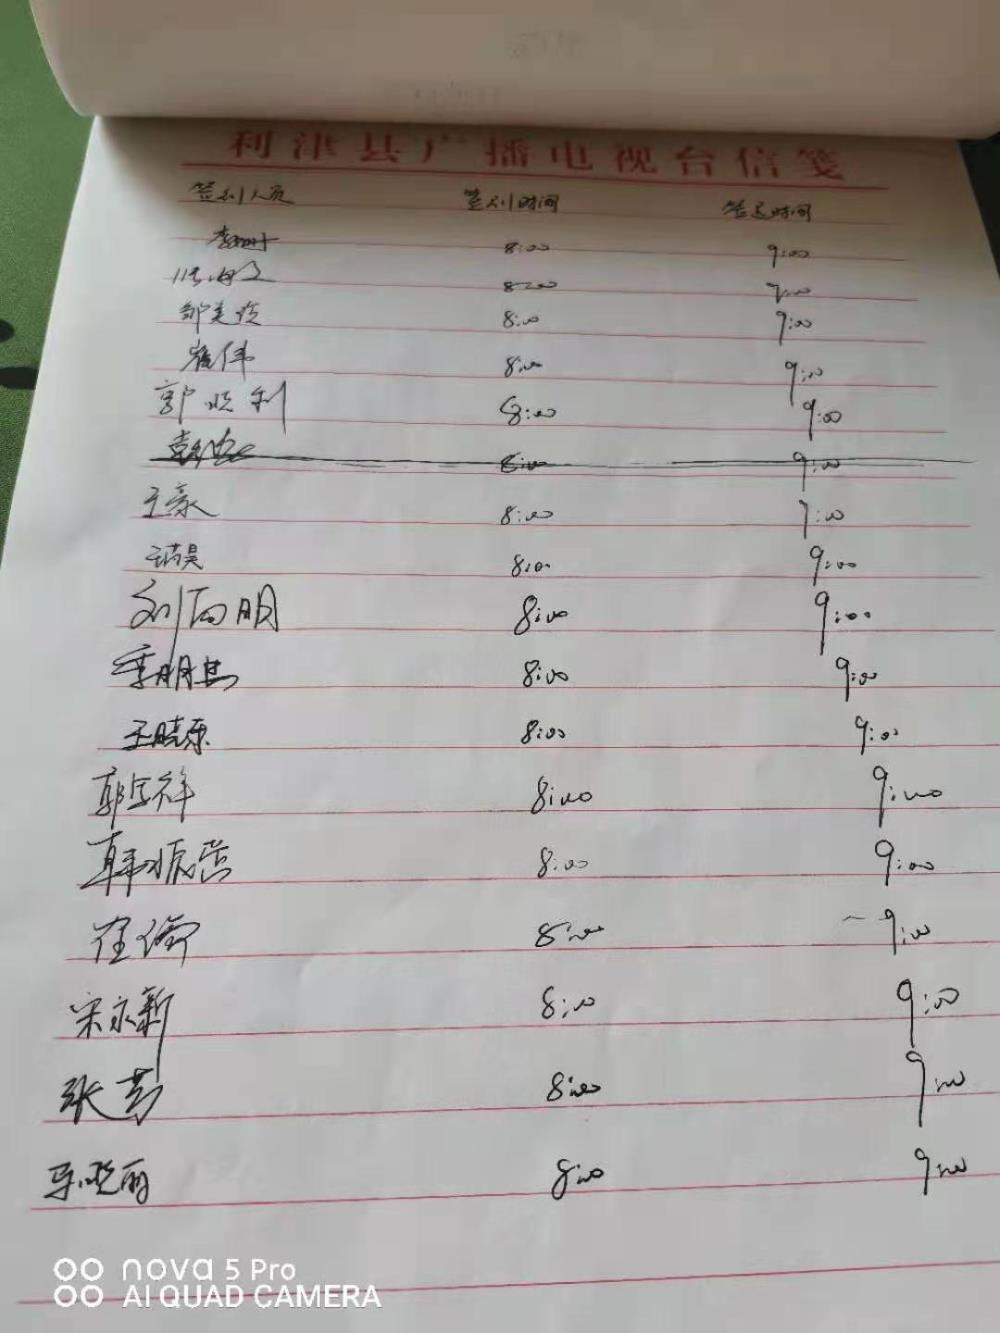 利津县广播电视台信笺
签到人员 签到时间 签退时间
8:00 9:00
8:00 9:00
邹美玲 8:00 9:00
崔伟 8:00 9:00
郭晓利 8:00 9:00
8:00 9:00
王豪 8:00 9:00
8:00 9:00
刘向明 8:00 9:00
季明 8:00 9:00
王晓乐 8:00 9:00
郭宝祥 8:00 9:00
韩振营 8:00 9:00
崔倩 8:00 9:00
宋永新 8:00 9:00
张芳 8:00 9:00
马晓丽 8:00 9:00
nova 5 Pro
AI QUAD CAMERA